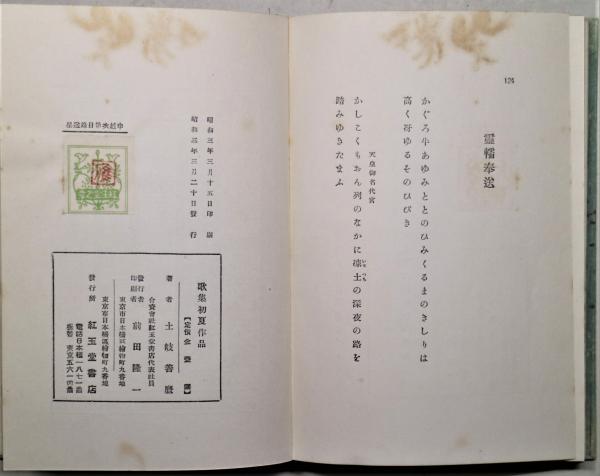 124
靈轜奉送
かぐろ牛あゆみととのひみくるまのきしりは
高く冴ゆるそのひびき
天皇御名代宮
かしこくもおん列のなかに凍土の深夜の路を
踏みゆきたまふ
昭和三年三月十五日印刷
昭和三年三月二十日發行
申越次第目錄送呈
歌集初夏作品
【定價金壹圓】
著者 土岐善麿
合資會社紅玉堂書店代表社員
發行者
印刷者 前田隆一
東京市日本橋區檜物町九番地
東京市日本橋區檜物町九番地
發行所 紅玉堂書店
電話日本橋一八七一番
振替東京五六一一番